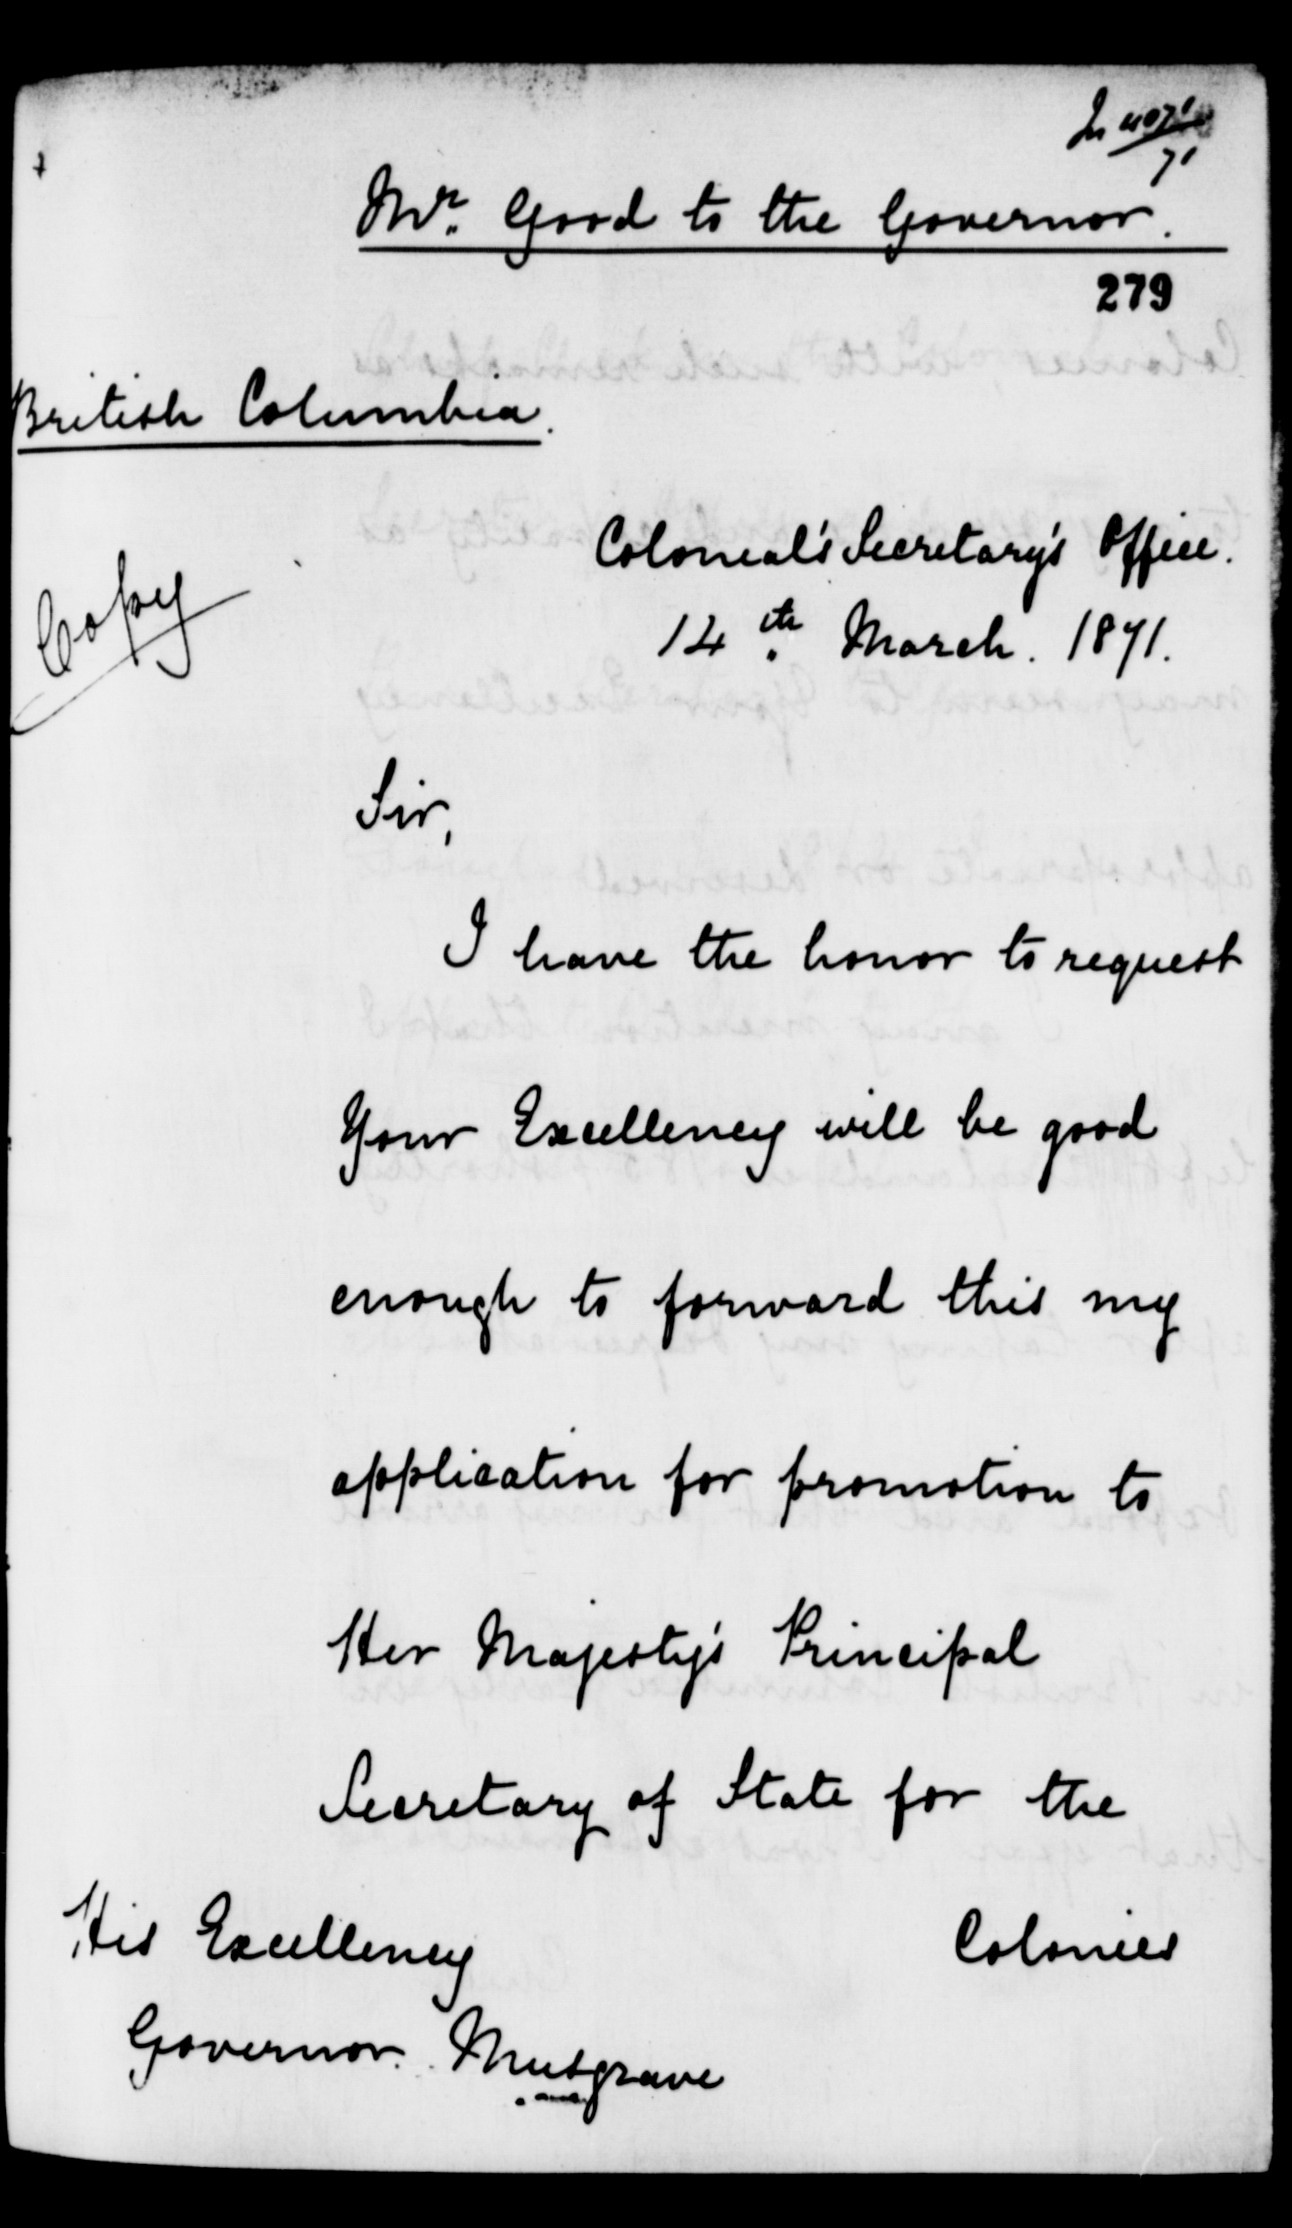 In 4071/71
Mr. Good to the Governor.
279
British Columbia.
Colonial's Secretary's Office.
14th March. 1871.
Copy
Sir,
I have the honor to request
Your Excellency will be good
enough to forward this my
application for promotion to
Her Majesty's Principal
Secretary of State for the
Colonies
His Excellency
Governor Musgrave